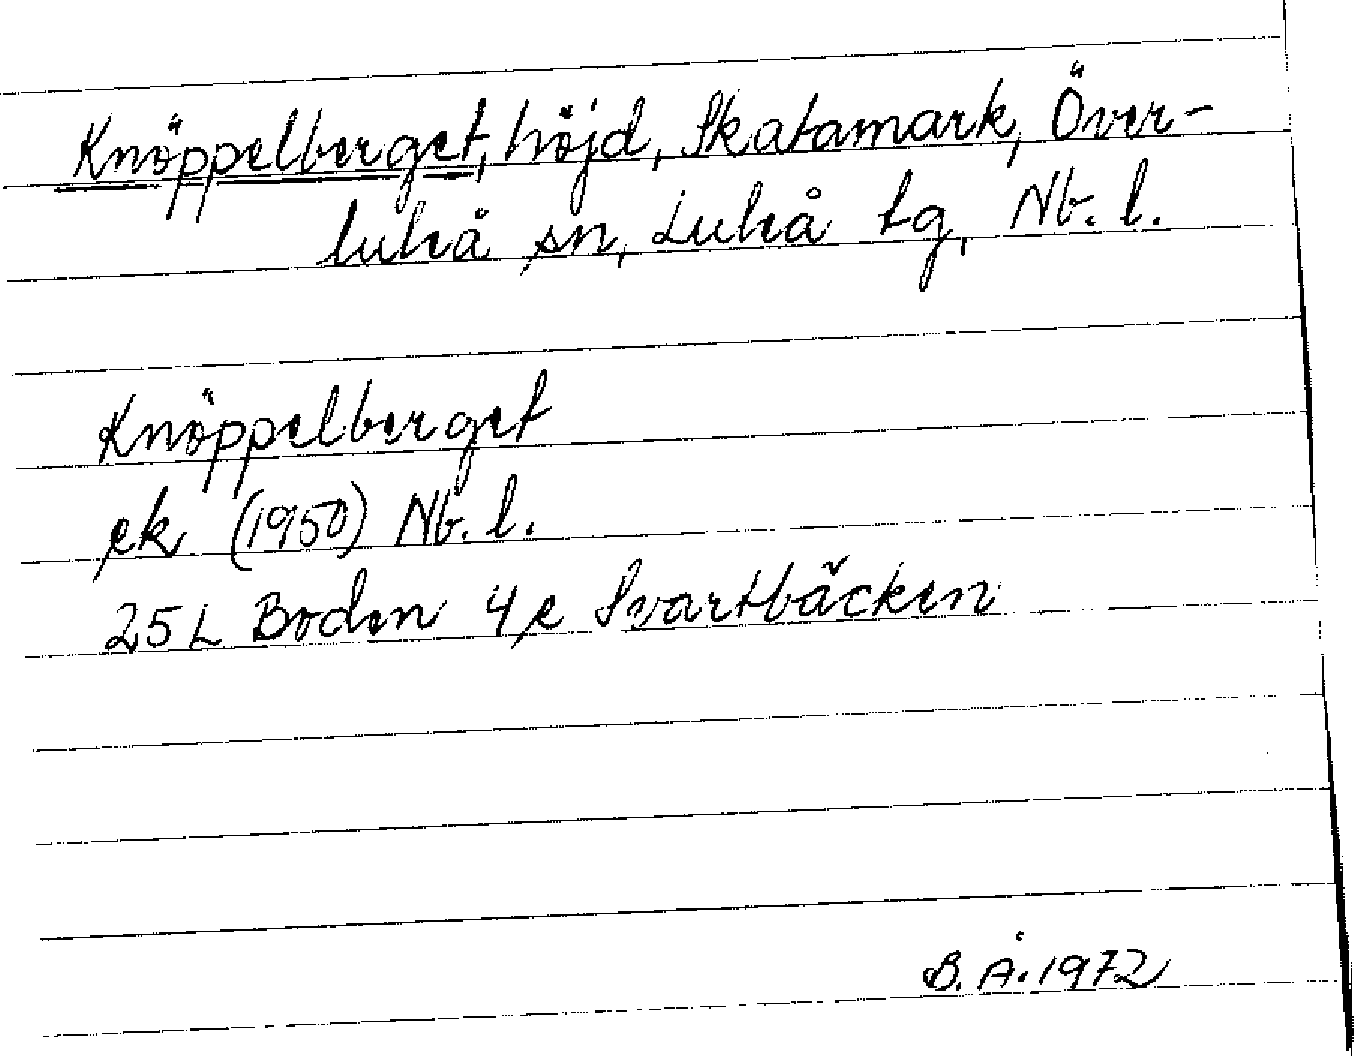 Knöppelberget, höjd, Skatamark, Över-
luleå sn, Luleå tg, Nb. l.
Knöppelberget
ek (1950) Nb. l.
25 L Boden 4 e Svartbäcken
B. Å. 1972